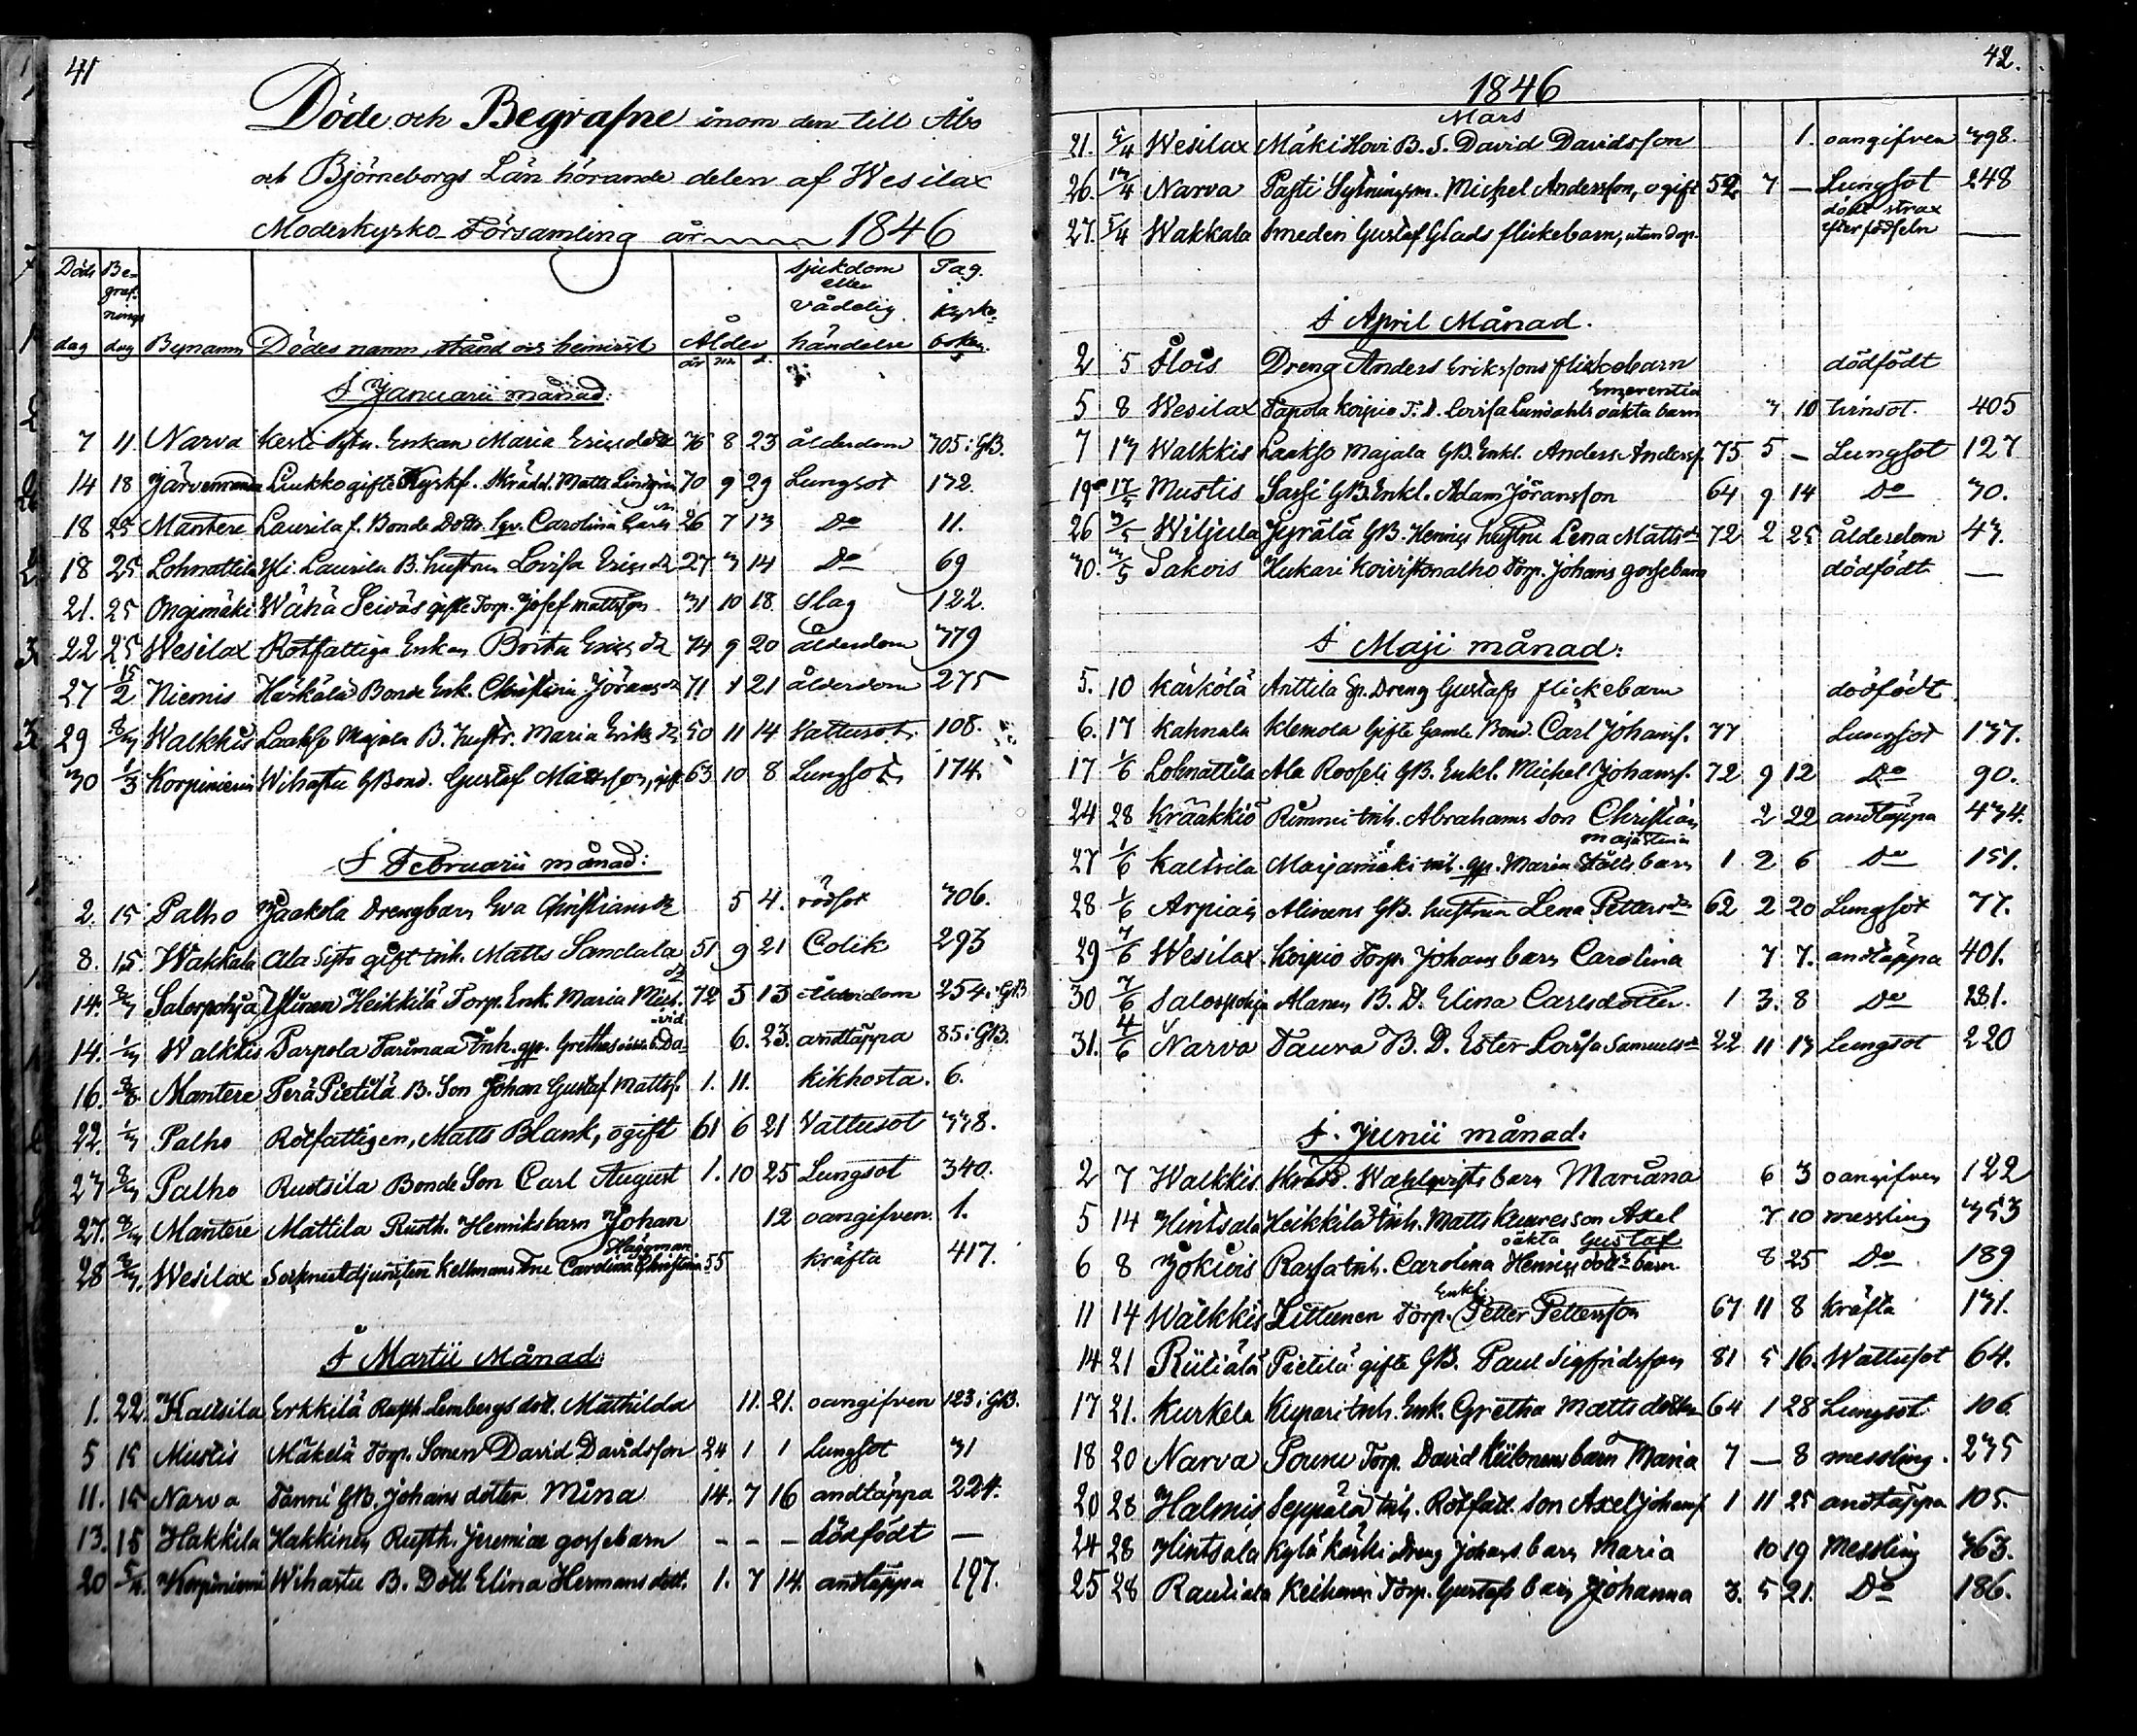 41
Döde och Begrafne inom den till Åbo
och Björneborgs Län hörande delen af Wesilax
Moderkyrko-Församling år 1846
Döds dag Begrafnings dag Bynamn Dödes namn, stånd och hemvist Ålder år m. d. sjukdom eller vådelig händelse Pag. i Kyrkoboken
I Januarii månad:
7 11 Narva Kesti Enkan Maria Ericsdr 76 8 23 ålderdom 305 i GB.
14 18 Järvenranta Liukko gifte Kyrkf. Skrädd. Matts Lindgren 70 9 29 Lungsot 132.
18 25 Mantere Laurila f. Bonde Dotte Carolina 26 7 13 Do 11.
18 25 Lohnattila Yli Laurila B. hustrun Lovisa Ericsdr 27 3 14 Do 69
21. 25 Ongimäki Wähä Seiväs gifte Torp. Josef Mattsson 31 10 18 Slag 122.
22 25 Wesilax Rotfattiga Enkan Brita Ericsdr 74 9 20 ålderdom 379
27 15/2 Niemis Härkälä Bonde Enk. Christina Jöransdr 71 1 21 ålderdom 275
29 8/3 Walkkis Laakso Majala B. hustr. Maria Eriksdr 50 11 14 Vattusot 108.
30 1/3 Korpiniemi Wihattu GBond. Gustaf Mattsson, gift 63 10 8 Lungsot 174.
I Februarii månad:
2. 15 Palho Jaakola Drengbarn Eva Christiansdr 5 4. rödsot 306.
8. 15 Wakkala Ala Sipto gift Inh. Matts Sandala 51 9 21 Colik 293
14. 8/3 Salospohja Ylinen Heikkilä Torp. Enk. Maria Mich.dr 72 5 13 Ålderdom 254. i GB
14. 1/3 Walkkis Parpola Tarimaa Inh. gp. Grethas 6. 23. andtäppa 85. i GB.
16. 8/8. Mantere Perä Pietilä B. Son Johan Gustaf Mattss. 1. 11. Kikhosta. 6.
22. 1/3 Palho Rotfattigen, Matts Blank, ogift 61 6 21 Vattusot 338.
23 8/3 Palho Ruotsila Bonde Son Carl August 1. 10 25 Lungsot 340.
27. 8/3 Mantere Mattila Rusth. Henriks barn Johan 12 oangifven. 1.
Häggman
28 8/3. Wesilax Kellmans Fru Carolina Christina 55 kräfta 417.
I Martii Månad:
1. 22. Kaltsila Erkkilä Rusth. Lembergs dott. Mathilda 11. 21. oangifven 123 i GB.
5 15 Mustis Mäkelä Torp. Sonen David Davidsson 24 1 1 Lungsot 31
11. 15 Narva Tanni GB. Johans dotter Mina 14. 7 16 andtäppa 224.
13. 15 Hakkila Hakkinen Rusth. Jeremiæ gossebarn - - - dödfödt —
20 5/4. Korpiniemi Wihattu B. Dott. Elina Hermans dott. 1. 7 14. andtäppa 197.
42.
1846
Mars
21. 5/4 Wesilax Mäki Hovi B. S. David Davidsson 1. oangifven 398.
26. 13/4 Narva Pasti Sytningsm. Michel Andersson, ogift 52 7 — Lungsot 248
27. 5/4 Wakkala Smeden Gustaf Glads flickebarn, utan dop. dödt strax efter födseln —
I April Månad.
2 5 Dreng Anders Erikssons flickebarn dödfödt
Emerentia
5 8 Wesilax Tapola Koipio T. D. Lovisa Lundahls oäkta barn 3 10 405
7 13 Walkkis Laakso Majala GB. Enkl. Anders Anderss. 75 5 — Lungsot 127
19 17/5 Mustis Sassi GB. Enkl. Adam Jöransson 64 9 14 Do 30.
26 3/5 Wiljula Jyrälä GB. Henrics hustru Lena Mattsdr 72 2 25 ålderdom 43.
30. 3/5 Sakois Hukari Koivistonalho Torp. Johans gossebarn dödfödt —
I Maji månad:
5. 10 Kärkölä Anttila Sp. Dreng Gustafs flickebarn dödfödt
6. 17 Kahnala Klemola Gifte Gamle Bond. Carl Johanss. 77 Lungsot 137.
17 1/6 Lohnattila Ala Rooseli GB. Enkl. Michel Johanss. 72 9 12 Do 90.
24 28 Krääkkiö Rimmi Inh. Abrahams son Christian 2 22 andtäppa 434.
Maja Stina
27 1/6 Kaltsila Marjamäki Inh. gp. Maria barn 1 2 6 Do 151.
28 1/6 Arpiais Alinens GB. hustrun Lena Pettersdr 62 2 20 Lungsot 77.
29 7/6 Wesilax Koipio Torp. Johans barn Carolina 7 7. andtäppa 401.
30 7/6 Salospohja Alanen B. D. Elina Carlsdotter. 1 3. 8 Do 281.
31. 4/6 Narva Taura B. D. Ester Lovisa Samuelsdr 22 11 13 Lungsot 220
I Junii månad:
2 7 Walkkis Skrädd. Wahlqvists barn Mariana 6 3 oangifven 122
5 14 Hintsala Heikkilä Inh. Matts son Axel 7 10 messling 353
oäkta Gustaf
6 8 Jokiois Rassa Inh. Carolina Henricsdotters barn 8 25 Do 189
Enkl.
11 14 Walkkis Littunen Torp. Petter Pettersson 67 11 8 kräfta 131.
14 21 Riuliälä Pietilä gifte GB. Paul Sigfridsson 81 5 16. Wattusot 64.
17 21. Kurkela Kupari Inh. Enk. Gretha Mattsdotter 64 1 28 Lungsot 106
18 20 Narva Pounu Torp. David barn Maria 7 — 8 messling. 235
20 28 Halmis Seppälä Inh. Rotfatt. son Axel Johans 1 11 25 andtäppa 105.
24 28 Hintsala Kylä Kärki Dreng Johans barn Maria 10 19 Messling 363.
25 28 Rautiala Keihonen Torp. Gustafs barn Johanna 3. 5 21. Do 186.